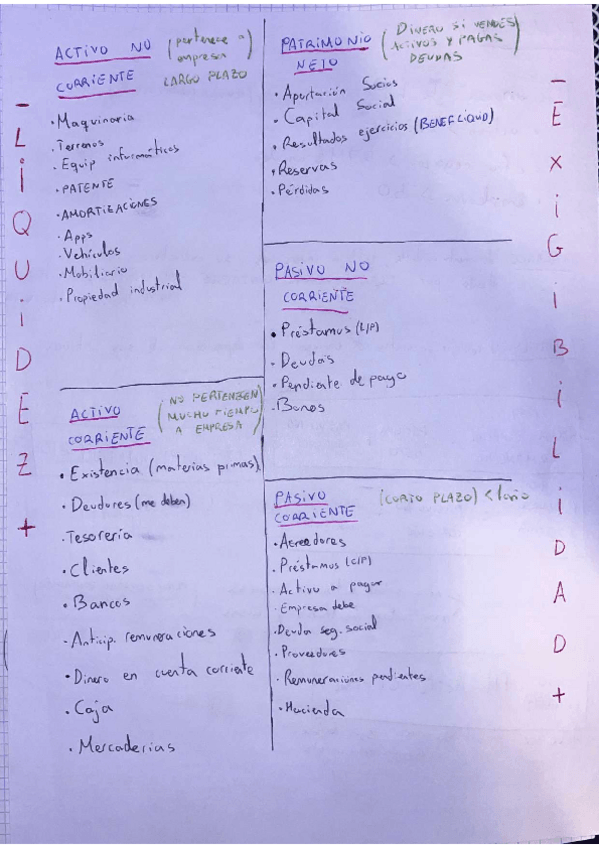 ACTIVO NO (pertenece a empresa)
CORRIENTE LARGO PLAZO
• Maquinaria
• Terrenos
• Equip informáticos
• PATENTE
• AMORTIZACIONES
• Apps
• Vehículos
• Mobiliario
• Propiedad industrial
ACTIVO
CORRIENTE
(NO PERTENECEN
MUCHO TIEMPO
A EMPRESA)
• Existencia (materias primas)
• Deudores (me deben)
• Tesorería
• Clientes
• Bancos
• Anticip. remuneraciones
• Dinero en cuenta corriente
• Caja
• Mercaderias
- LiQUiDEZ +
PATRIMONIO
NETO
(DINERO SI VENDES
ACTIVOS Y PAGAS
DEUDAS)
• Aportación Socios
• Capital Social
• Resultados ejercicios (BENEF LIQUID)
• Reservas
• Pérdidas
PASIVO NO
CORRIENTE
• Préstamos (L/P)
• Deudas
• Pendiente de pago
• Bonos
PASIVO
CORRIENTE
(CORTO PLAZO) < 1 año
• Acreedores
• Préstamos (C/P)
• Activo a pagar
• Empresa debe
• Deuda seg. social
• Proveedores
• Remuneraciones pendientes
• Hacienda
- EXiGiBiLiDAD +